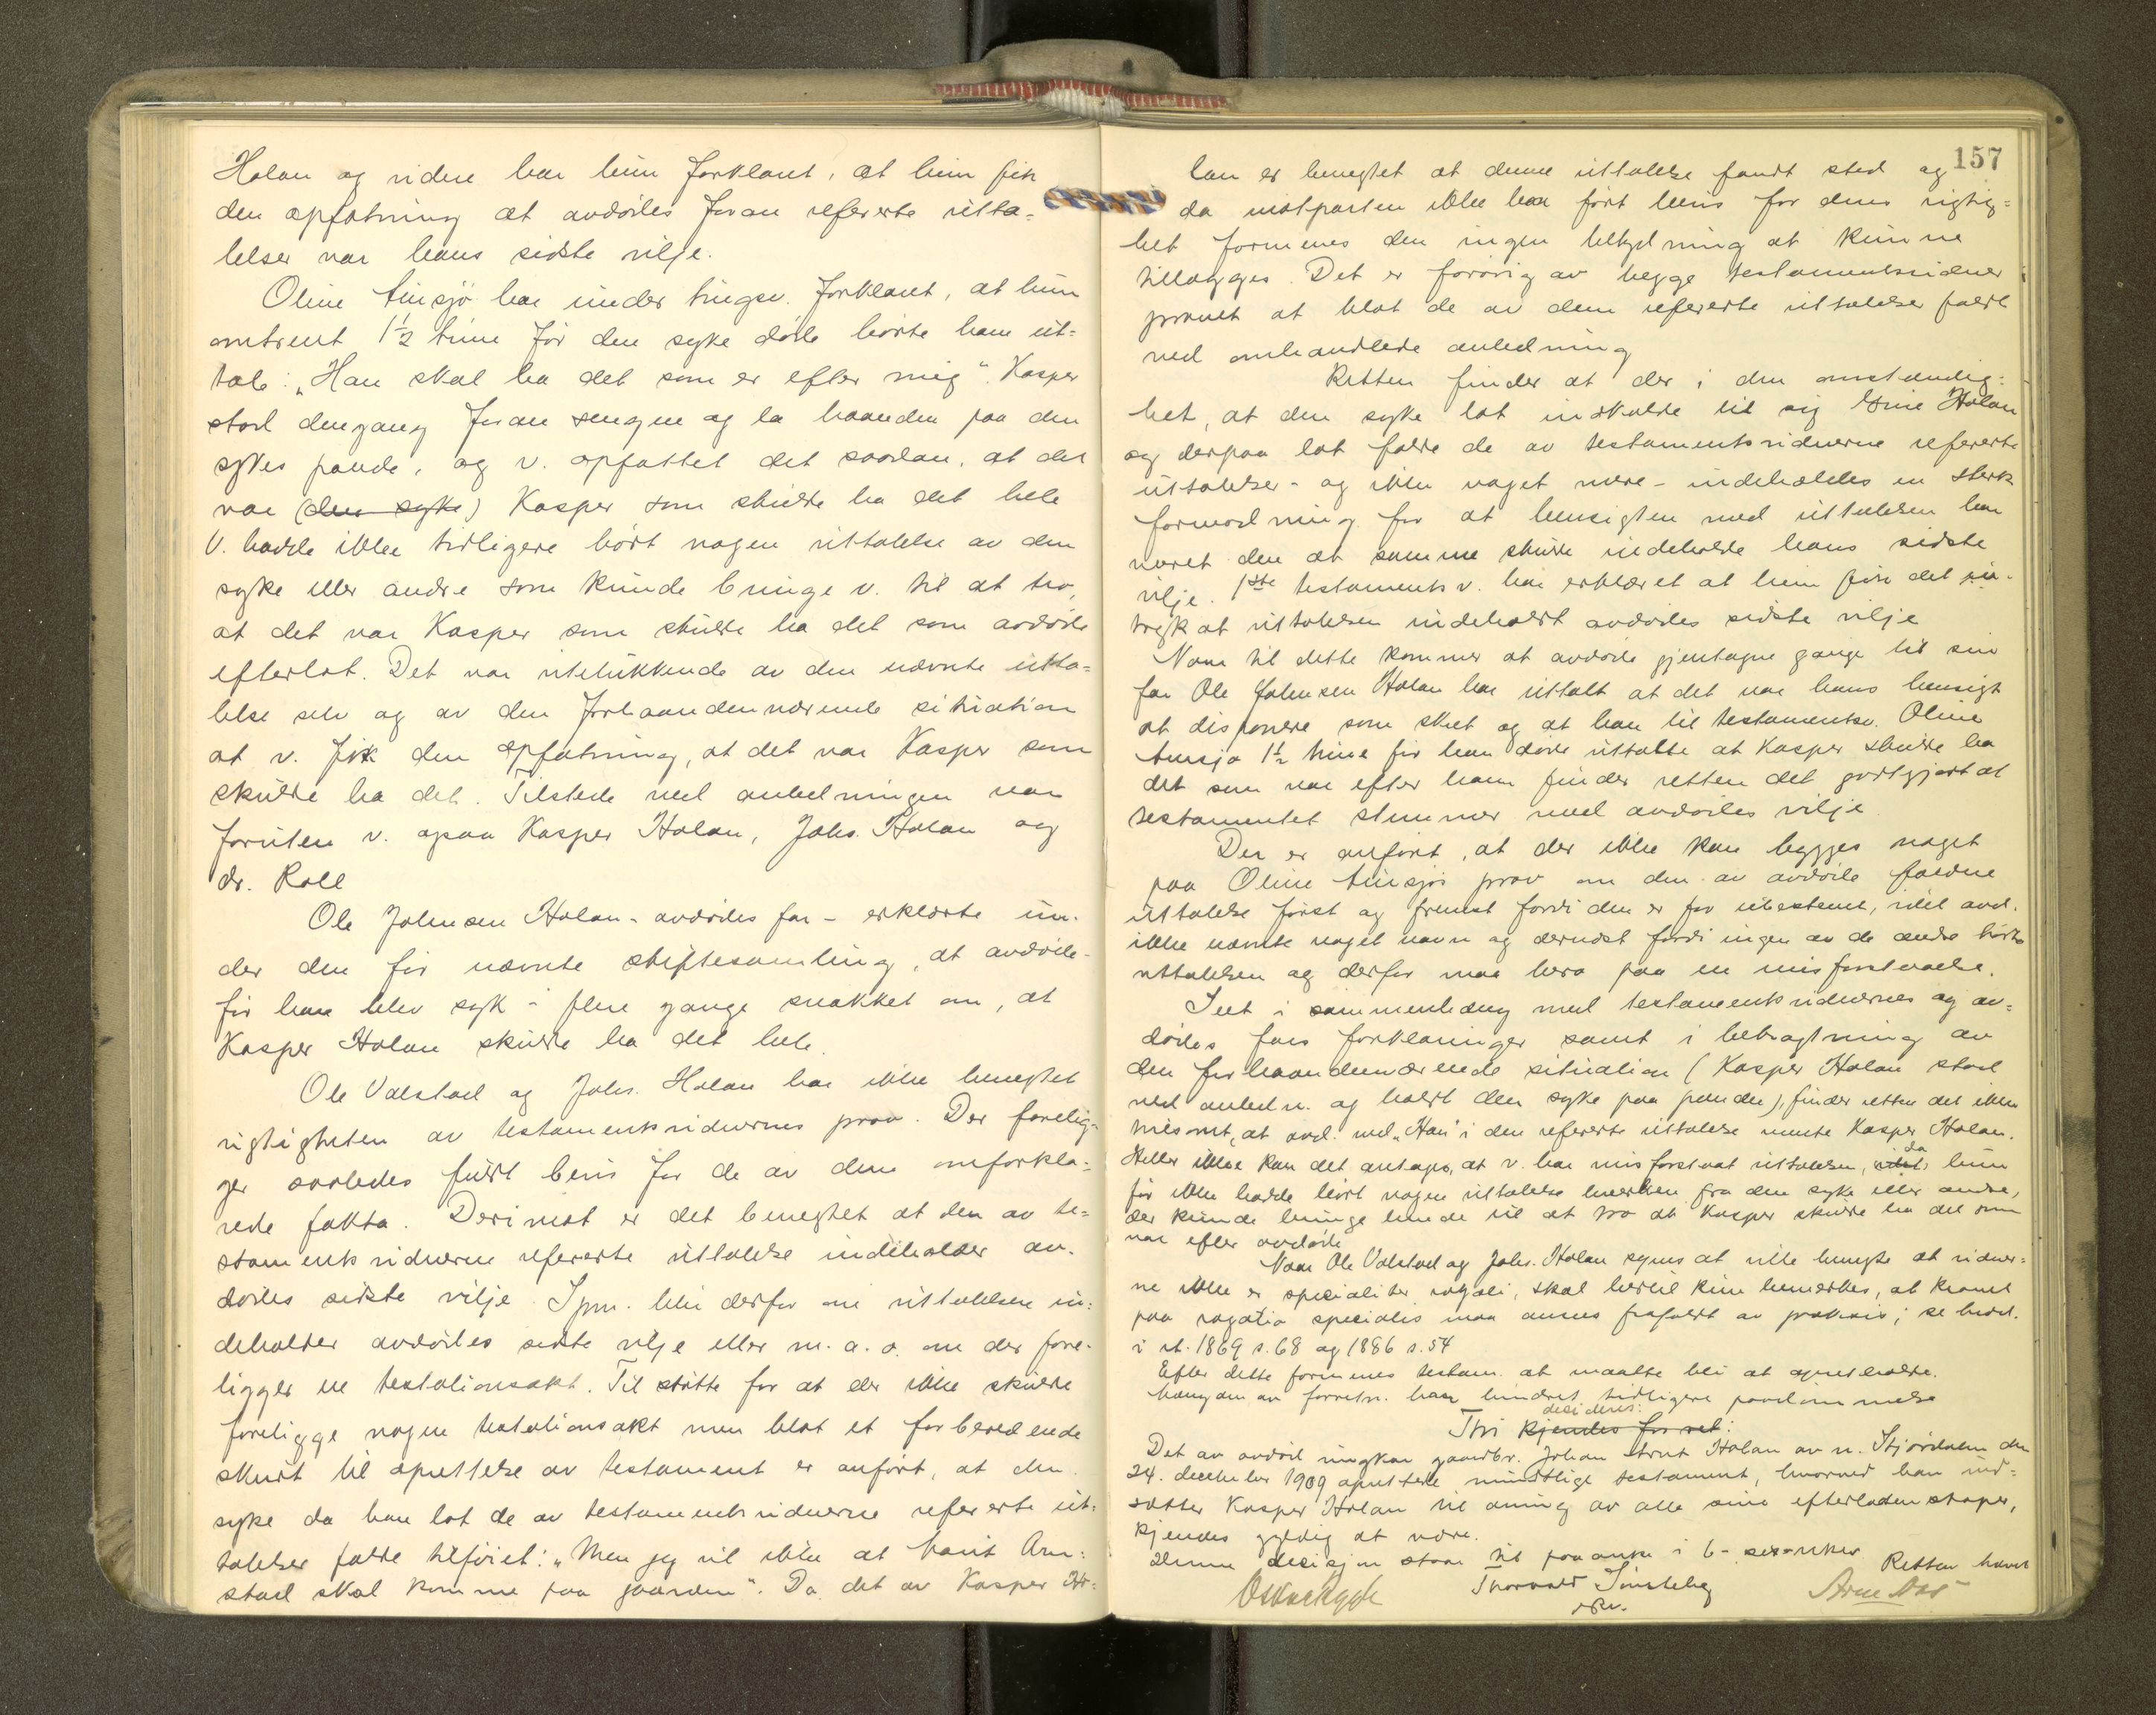 Holan og videre har hun forklaret, at hun fik
den opfatning at avdødes foran refererte utta=
lelser var hans sidste vilje.
Oline Aunsjø har under tingsv. forklaret, at hun
omtrent 1½ time før den syke døde hørte ham ut=
tale: „Han skal ha det som er efter mig“. Kasper
stod dengang foran sengen og la haanden paa den
sykes pande, og v. opfattet det saadan, at det
var (den syke) Kasper som skulde ha det hele
V. hadde ikke tidligere hørt nogen uttalelse av den
syke eller andre som kunde bringe v. til at tro,
at det var Kasper som skulde ha det som avdøde
efterlot. Det var utelukkende av den nævnte utta=
lelse selv og av den forhaandenværende situation
at v. fik den opfatning, at det var Kasper som
skulde ha det. Tilstede ved anledningen var
foruten v. ogsaa Kasper Holan, Johs. Holan og
dr. Roll
Ole Johnsen Holan - avdødes far - erklærte un-
der den før nævnte skiftesamling, at avdøde -
før han blev syk - flere gange snakket om, at
Kasper Holan skulde ha det hele.
Ole Valstad og Johs. Holan har ikke benegtet
rigtigheten av testamentsvidnernes prov. Der forelig=
ger saaledes fuldt bevis for de av dem omforkla=
rede fakta. Derimot er det benegtet at den av te=
stamentsvidnerne refererte uttalelse indeholder av-
dødes sidste vilje. Spm. blir derfor om uttalelsen in=
deholder avdødes sidste vilje eller m. a. o. om der fore-
ligger en testationsakt. Til støtte for at der ikke skulde
foreligge nogen testationsakt men blot et forberedende
skridt til oprettelse av testament er anført, at den
syke da han lot de av testamentsvidnerne refererte ut=
talelser falde tilføiet: „Men jeg vil ikke at Marit Arn=
stad skal komme paa gaarden“. Da det av Kasper Ho=
157
lan er benegtet at denne uttalelse fandt sted og
da motparten ikke har ført bevis for dens rigtig=
het formenes den ingen betydning at kunne
tillægges. Det er forøvrig av begge testamentsvidner
provet at blot de av dem refererte uttalelser faldt
ved omhandlede anledning
Retten finder at der i den omstændig=
het, at den syke lot indkalde til sig Holan
og derpaa lot falde de av testamentsvidnerne refererte
uttalelser - og ikke noget mere - indeholdes en sterk
formodning for at hensigten med uttalelsen har
været den at samme skulde indeholde hans sidste
vilje. 1ste testamentsv. har erklæret at hun fik det in-
tryk at uttalelsen indeholdt avdødes sidste vilje
Naar til dette kommer at avdøde gjentagne gange til sin
far Ole Johnsen Holan har uttalt at det var hans hensigt
at disponere som skeet og at han til testamentsv. Oline
Aunsjø 1½ time før han døde uttalte at Kasper skulde ha
det som var efter ham finder retten det godtgjort at
testamentet stemmer med avdødes vilje
Der er anført, at der ikke kan bygges noget
paa Oline Aunsjøs prov om den av avdøde faldne
uttalelse først og fremst fordi den er for ubestemt, idet avd.
ikke nævnte noget navn og dernæst fordi ingen av de andre hørte
uttalelsen og derfor maa bero paa en misforstaaelse.
Seet i sammenhæng med testamentsvidnernes og av=
dødes fars forklaringer samt i betragtning av
den forhaandenværende situation (Kasper Holan stod
ved anledn. og holdt den syke paa panden), finder retten det ikke
tvilsomt, at avd. med „Han“ i den refererte uttalelse mente Kasper Holan.
Heller ikke kan det antages, at v. har misforstaat uttalelsen, idet da hun
før ikke hadde hørt nogen uttalelse hverken fra den syke eller andre,
der kunde bringe hende til at tro at Kasper skulde ha det som
var efter avdøde
Naar Ole Valstad og Johs. Holan synes at ville benegte at vidner=
ne ikke er specialiter rogati, skal hertil kun bemerkes, at kravet
paa rogatio specialis maa ansees frafaldt av praksis; se
i rt. 1869 s. 68 og 1886 s. 54
Efter dette formenes testam. at maatte bli at opretholde.
Mængden av forretn. har hindret tidligere paadømmelse
decideres:
Thi kjendes for ret:
Det av avdød ungkar gaardbr. Johan Arnt Holan av n. Stjørdalen den
24. december 1909 oprettede mundtlige testament, hvorved han ind=
sætter Kasper Holan til arving av alle sine efterladenskaper,
kjendes gyldig at være.
Denne decisjon staar til paaanke i 6 - sex - uker
Retten hævet
Thorvald
Arne Aas